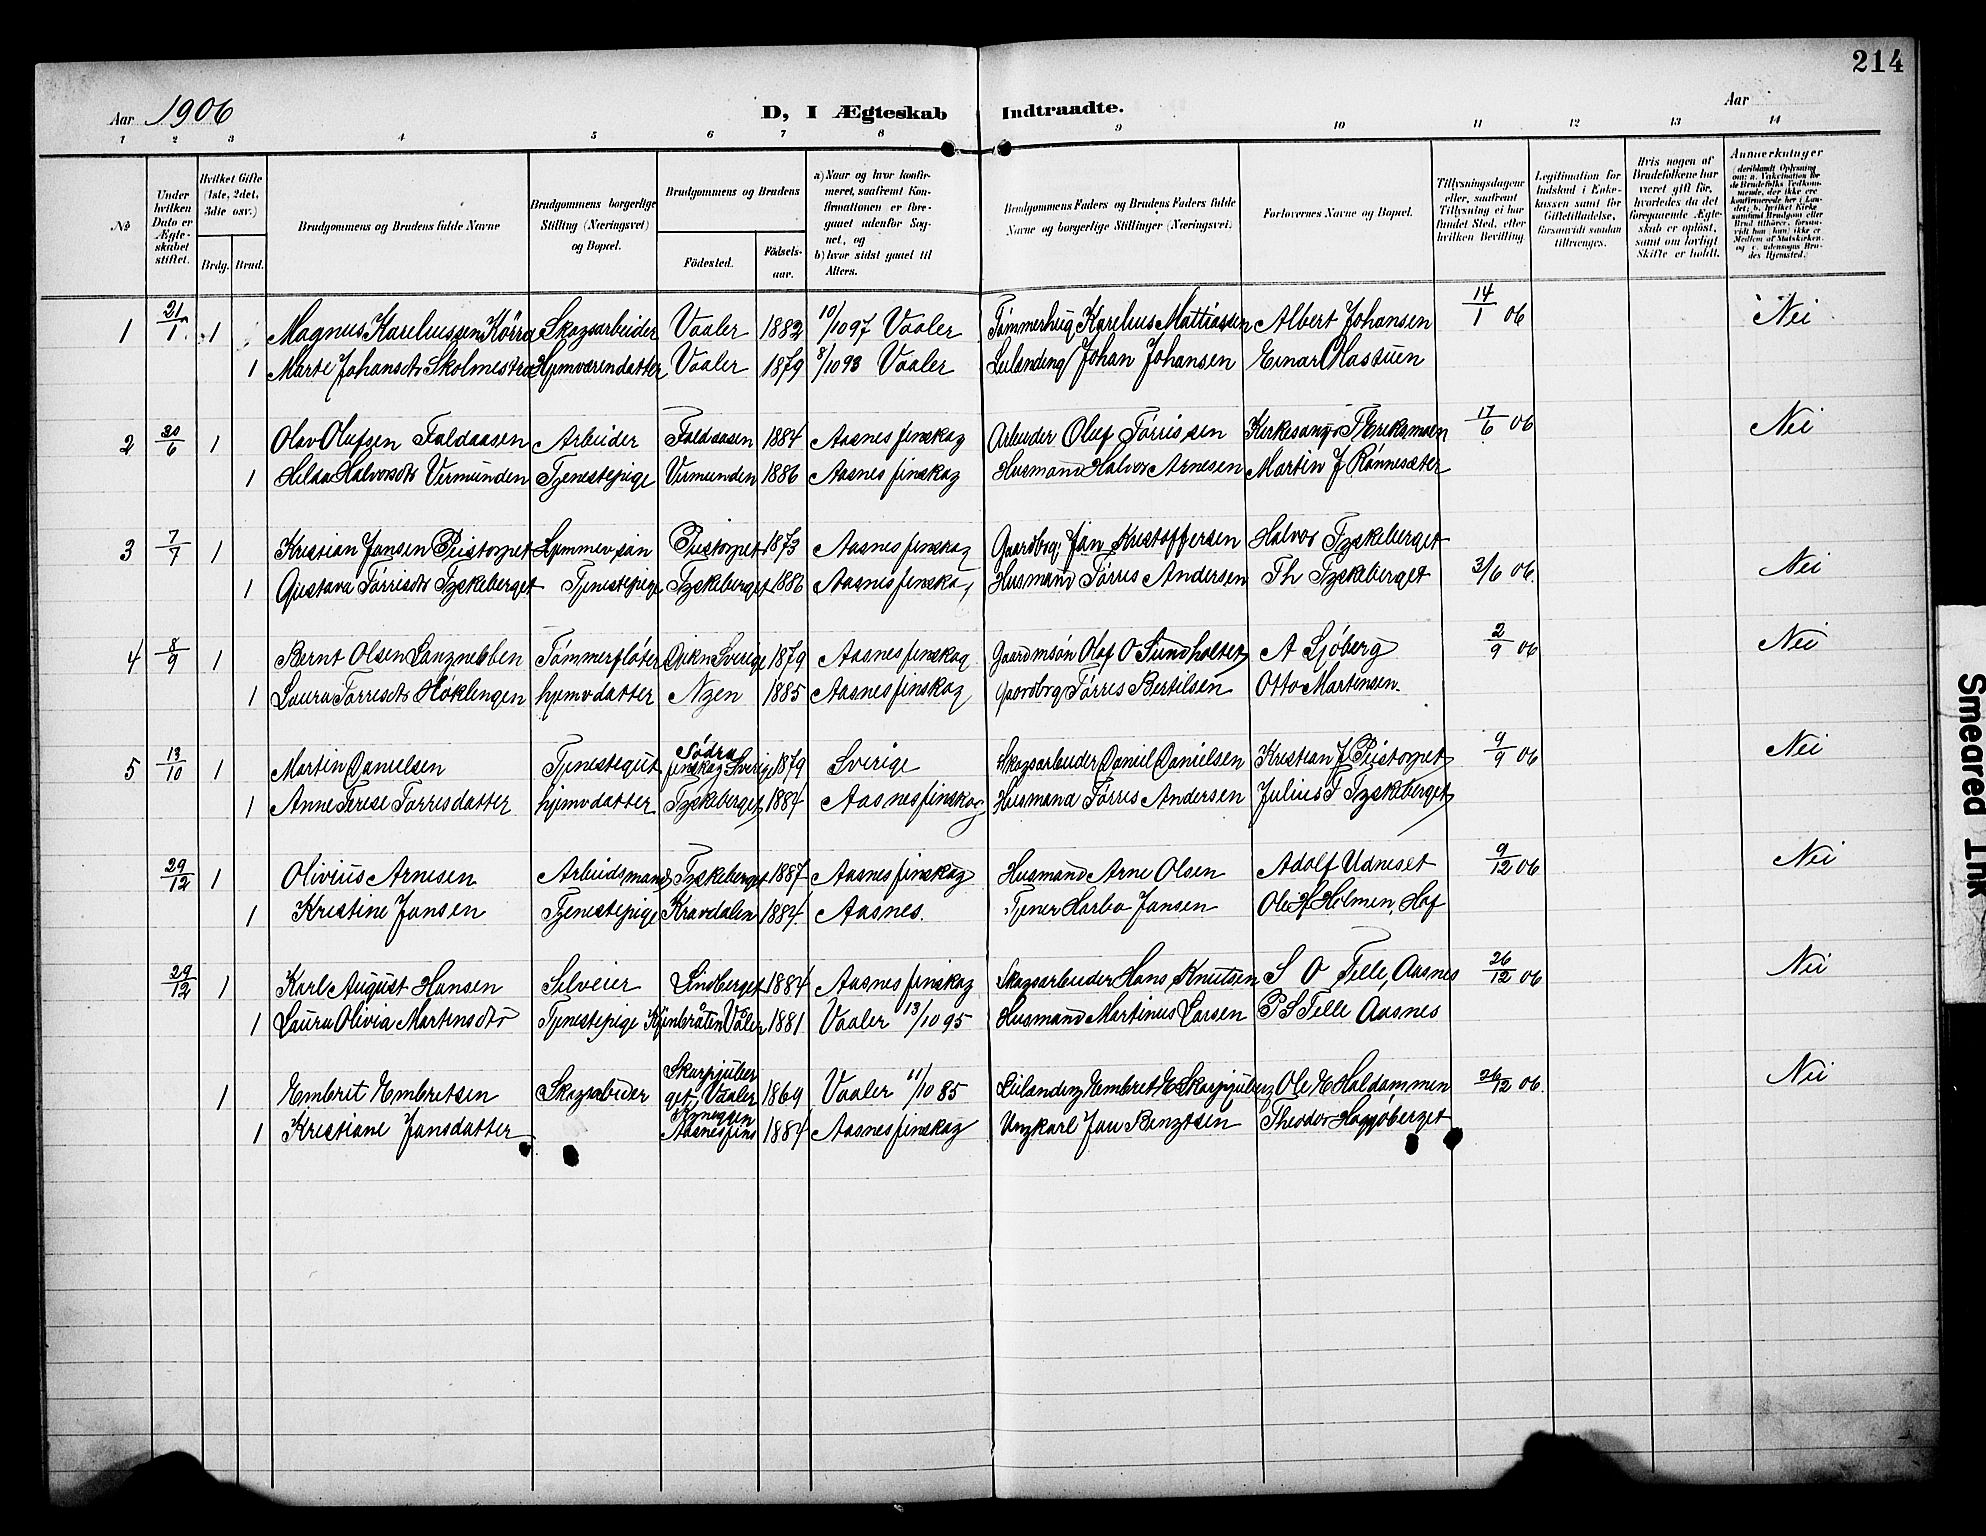 214
Aar 1906 D, I Ægteskab Indtraadte. Aar
1 2 3 4 5 6 7 8 9 10 11 12 13 14
№ Under hvilken Dato er Ægteskabet stiftet. Hvilket Gifte (1ste, 2det, 3die osv.) Brdg. Brud. Brudgommens og Brudens fulde Navne Brudgommens borgerlige Stilling (Næringsvei) og Bopæl. Brudgommens og Brudens Fødested. Fødselsaar. a) Naar og hvor konfirmeret, saafremt Konfirmationen er foregaaet udenfor Sognet, og b) hvor sidst gaaet til Alters. Brudgommens Faders og Brudens Faders fulde Navne og borgerlige Stillinger (Næringsvei). Forlovernes Navne og Bopæl. Tillysningsdagene eller, saafremt Tillysning ei har fundet Sted, efter hvilken Bevilling Legitimation for Indskud i Enkekassen samt for Giftetilladelse, forsaavidt saadan tiltrænges. Hvis nogen af Brudefolkene har været gift før, hvorledes da det foregaaende Ægteskab er opløst, samt om lovligt Skifte er holdt. Anmerkninger
1 21/1 1 Magnus Kareliussen Körra Skogsarbeider Vaaler 1882 10/10 97 Vaaler Tømmerhug Karelius Mattiassen Albert Johansen 14/1 06 Nei
1 Marte Johansdtr Skolmestra Hjemværendatter Vaaler 1879 8/10 93 Vaaler Leilending Johan Johansen Einar Olassuen
2 30/6 1 Olav Olufsen Faldaasen Arbeider Faldaasen 1884 Aasnes finskog Arbeider Oluf Törrissen Kirkesanger T Eriksmoen 17/6 06 Nei
1 Helaa Halvorsdtr Vermunden Tjenestepige Vermunden 1886 Aasnes finskog Husmand Halvor Arnesen Martin J Rönnesæter
3 7/7 1 Kristian Jansen Peistorpet Hjemmev. søn Peistorpet 1873 Aasnes finskog Gaardbrg. Jan Kristoffersen Halvor Tyskeberget
1 Gustava Törrisdtr Tyskeberget Tjenestepige Tyskeberget 1886 Aasnes finskog Husmand Törris Andersen Th Tyskeberget 3/6 06. Nei
4 8/9 1 Bernt Olsen Langnebben Tömmerfløter Sverige 1879 Aasnes finskog Gaardmsön Olof O Sundholtet A Sjöberg 2/9 06 Nei
1 Laura Törresdtr Høklengen hjemv datter Nyen 1885 Aasnes finskog gaardbrg Törris Bertilsen Otto Martensen.
5 13/10 1 Martin Danielsen Tjenestegut Södra finskog Sverige 1879 Sverige Skogsarbeider Daniel Danielsen Kristian J Peistorpet 9/9 06 Nei
1 Anne Terese Törrisdatter hjemv datter Tyskeberget 1884 Aasnes finskog Husmand Törris Andersen Julius T Tyskeberget
29/12 1 Olivius Arnesen Arbeidsmand Tyskeberget 1887 Aasnes finskog Husmand Arne Olsen Adolf Udneset 9/12 06 Nei
1 Kristine Jansen Tjenestepige Kravdalen 1884 Aasnes. Tjener Harbo Jansen Ole H Holmen, Hof
29/12 1 Karl August Hansen Selveier Lindberget 1884 Aasnes finskog Skogsarbeider Hans Knutsen S O Telle, Aasnes 26/12 06 Nei
1 Laura Olivia Martensdtr Tjenestepige Våler 1881 Vaaler 13/10 95 Husmand Martinus Larsen P S Telle Aasnes
1 Embret Embretsen Skogsarbeider Skarpjuberget, Vaaler 1869 Vaaler 11/10 85 Leilending Embret E Skarpjuberg Ole E Haldammen 26/12 06. Nei
1 Kristiane Jansdatter Aasnesfins 1884 Aasnes finskog Ungkarl Jan Bengtsen Theodor Haggöberget
Smeared Ink